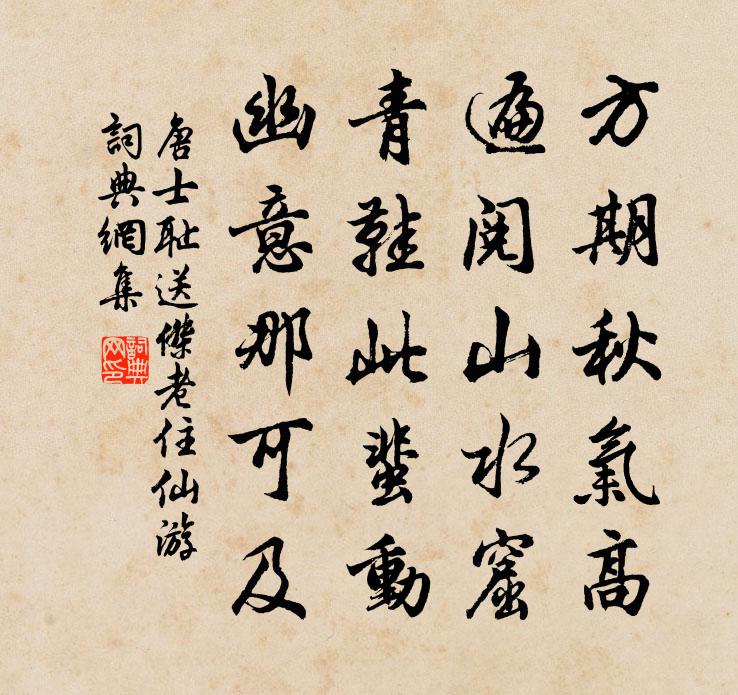 方期秋氣高
遍閱山水窟
青鞋此蜚動
幽意那可及
唐士耻送傑老住仙游
詞典網集
詞典網印